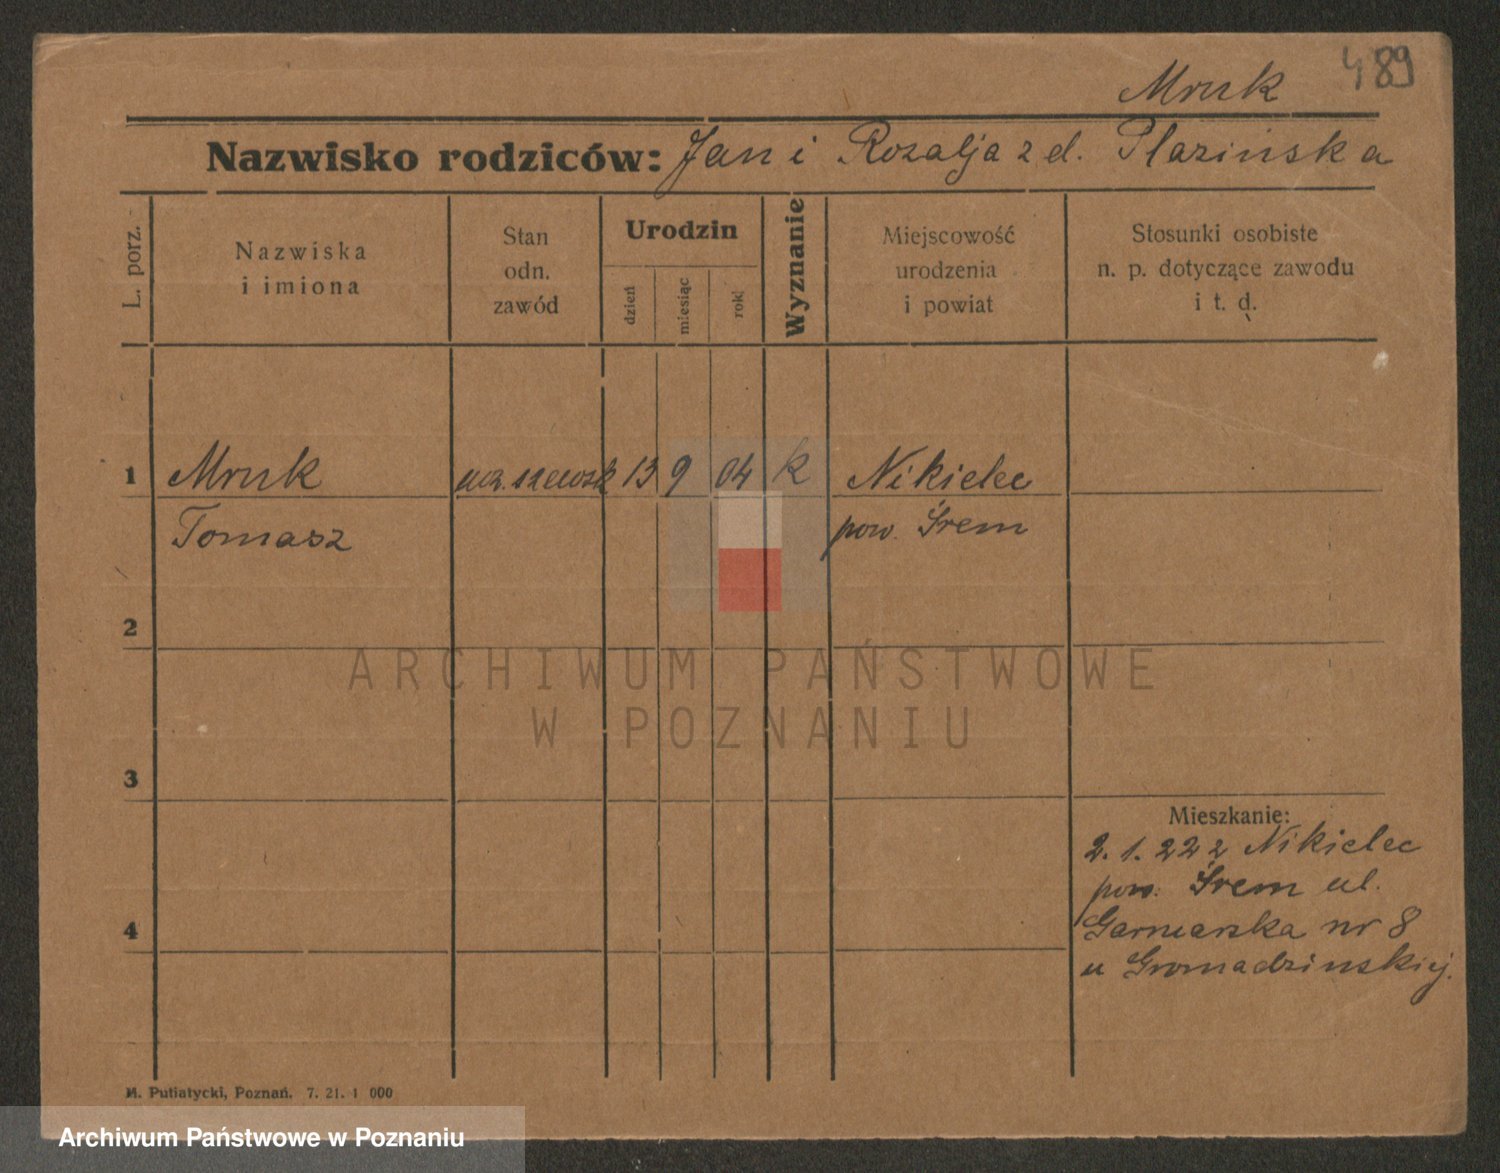 489
Mruk
Nazwisko rodziców: Jan i Rozalja z d. Plazińska
L. porz.
Nazwiska
i imiona
Stan
odn.
zawód
Urodzin
dzień
miesiąc
rok
Wyznanie
Miejscowość
urodzenia
i powiat
Stosunki osobiste
n. p. dotyczące zawodu
i t. d.
1 Mruk ucz. szewsk 13 9 04 k Nikielec
Tomasz pow. Śrem
2
ARCHIWUM PAŃSTWOWE
W POZNANIU
3
Mieszkanie:
2. 1. 22 z Nikielec
pow. Śrem ul.
4 Garncarska nr 8
u Gromadzinskiej.
M. Putiatycki, Poznań. 7. 21. 1 000
Archiwum Państwowe w Poznaniu